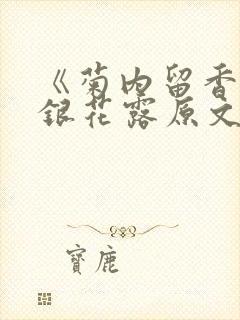 《菊内留香
银花露原文
寶鹿